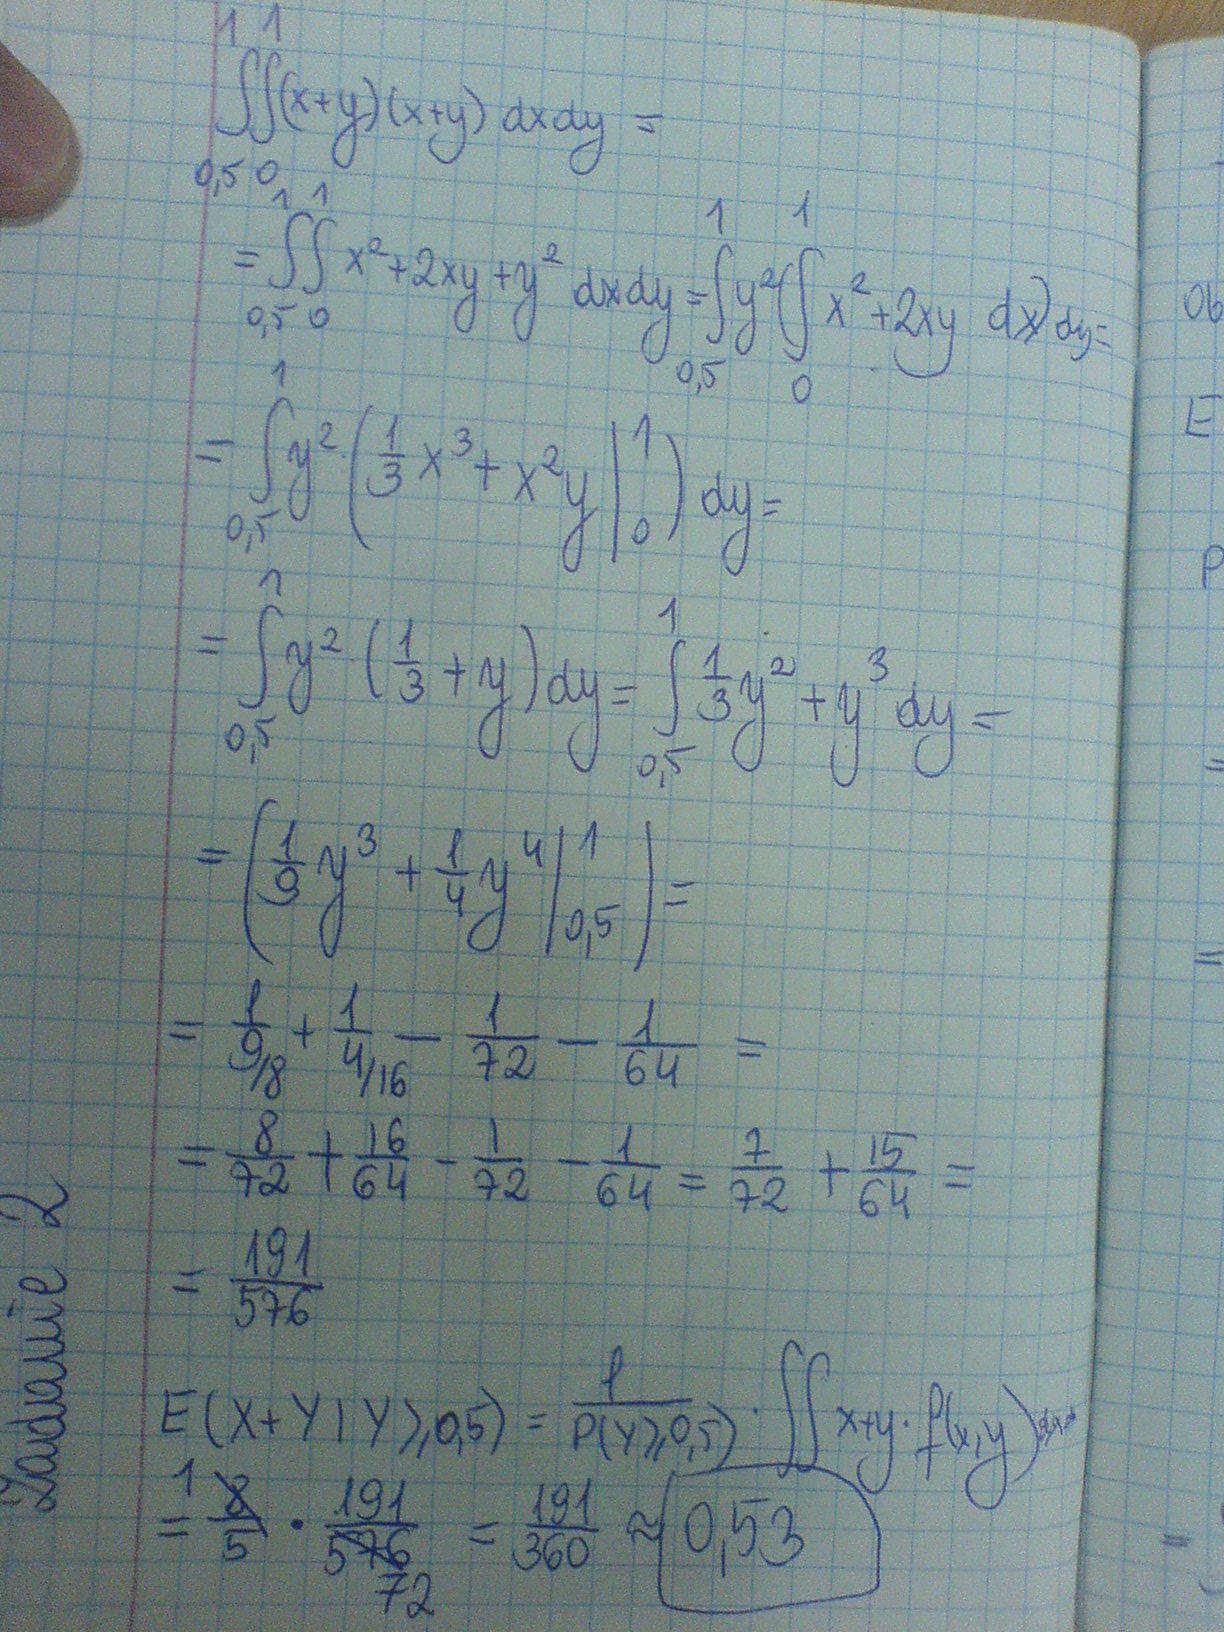 ∫_{0,5}^{1} ∫_{0}^{1} (x+y)(x+y) dxdy =
= ∫_{0,5}^{1} ∫_{0}^{1} x² + 2xy + y² dxdy = ∫_{0,5}^{1} y² (∫_{0}^{1} x² + 2xy dx) dy =
= ∫_{0,5}^{1} y² · (1/3 x³ + x²y |_{0}^{1}) dy =
= ∫_{0,5}^{1} y² · (1/3 + y) dy = ∫_{0,5}^{1} 1/3 y² + y³ dy =
= (1/9 y³ + 1/4 y⁴ |_{0,5}^{1}) =
= 1/9/8 + 1/4/16 − 1/72 − 1/64 =
= 8/72 + 16/64 − 1/72 − 1/64 = 7/72 + 15/64 =
= 191/576
E(X+Y|Y≥0,5) = 1/P(Y≥0,5) · ∫∫ x+y · f(x,y)
= 1 8/5 · 191/576 72 = 191/360 ≈ 0,53
Zadanie 2
Ob
E
P
=
=
=